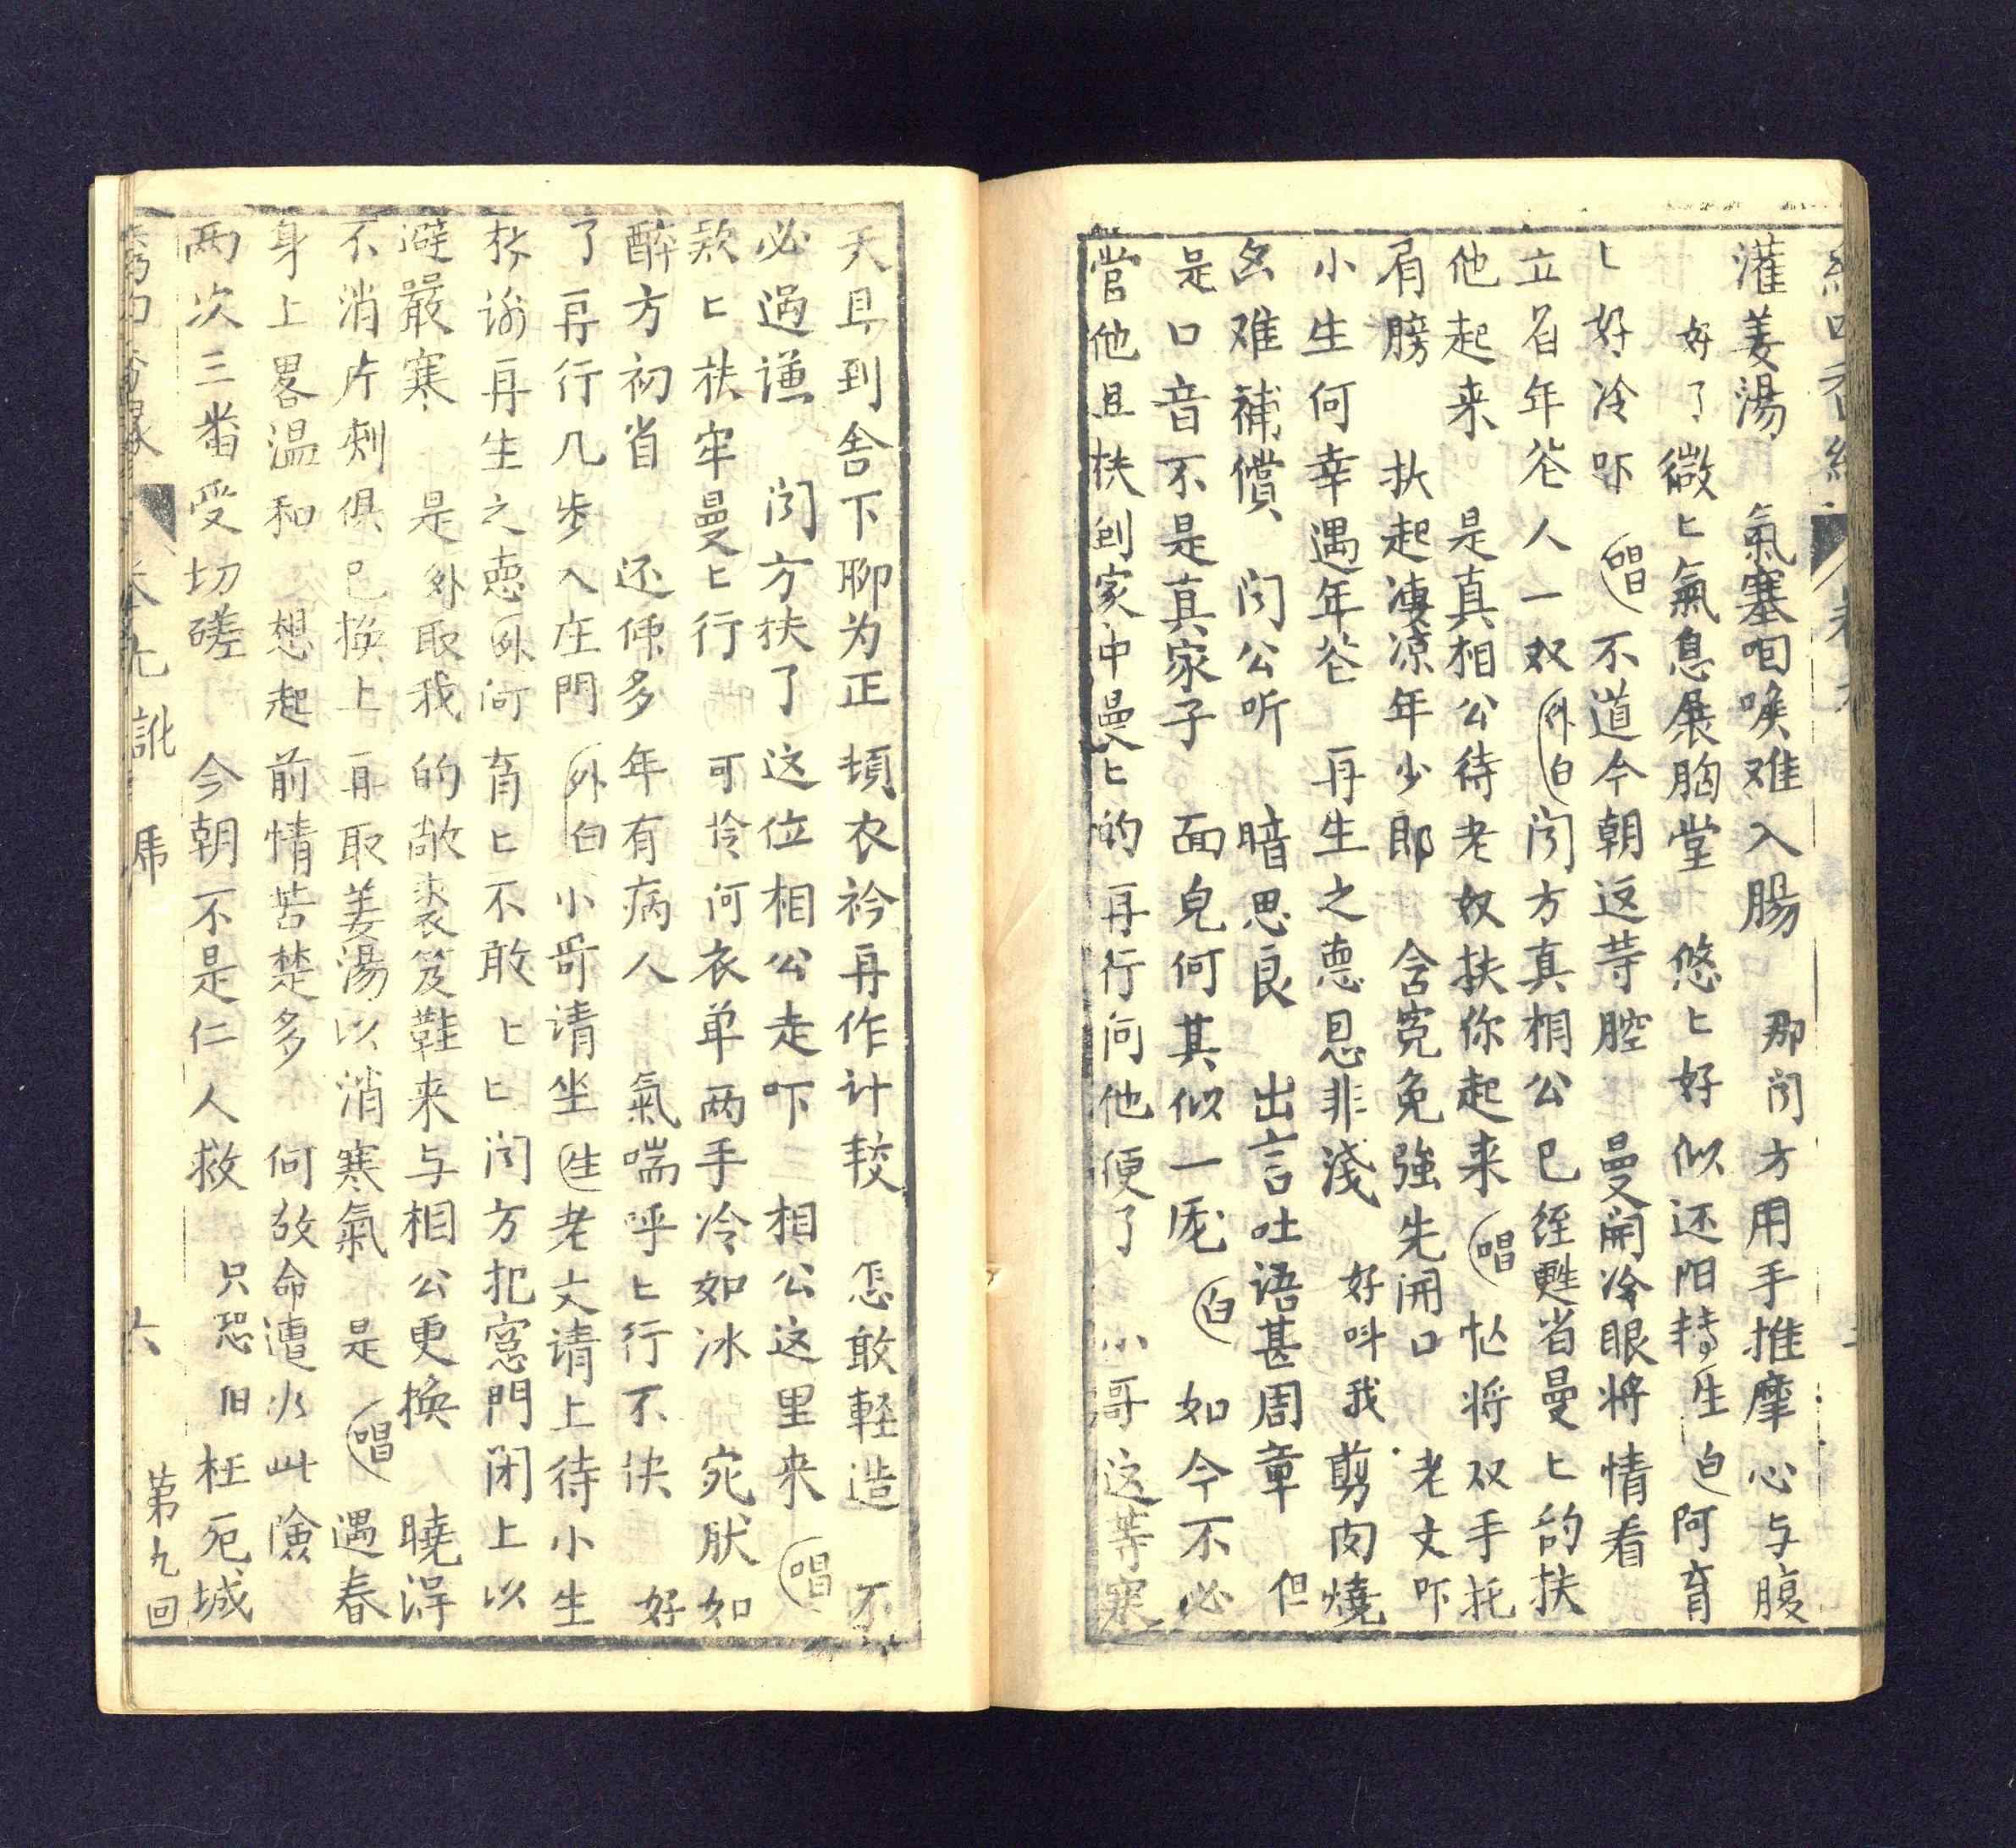 灌姜湯　氣塞咽喉难入腸　那门方用手推摩心与腹
好了　微匕氣息展胸堂　悠匕好似还阳转　生白　阿育
匕好冷吓　唱　不道今朝这荨腔　曼開冷眼将情看
立着年老人一双　外白　门方真相公已経甦省曼匕的扶
他起来　是真相公待老奴扶你起来　唱　忙将双手托
肩膀　扒起凄凉年少郎　含冤免強先闭口　老丈吓
小生何幸遇年老　再生之惪恩非淺　好呌我　剪肉燒
难補償　门公听　暗思良　出言吐语甚周章　但
是口音不是真家子　面皃何其似一厐　白　如今不必
管他且扶到家中曼匕的再行问他便了　小哥这等寒
天且到舍下聊为正頓衣衿再作计較　怎敢輕造　不
必過谦　门方扶了这位相公走吓　相公这里来　唱
欵匕扶牢曼匕行　可怜何衣单两手冷如冰　宛肰如
醉方初省　还像多年有病人　氣喘呼匕行不快　好
了再行几步入庄門　外白　小哥请坐　生　老丈请上待小生
拜谢再生之惪　外　阿育匕不敢匕匕门方把窓門闭上以
避嚴寒　是　外　取我的敝裘笈鞋来与相公更换　曉淂
不消片刺俱已换上　再取姜湯以消寒氣　是　唱　遇春
身上畧温和　想起前情苦楚多　何故命遭如此險
两次三畨受切磋　今朝不是仁人救　只恐旧枉死城
卷九　六　第九回